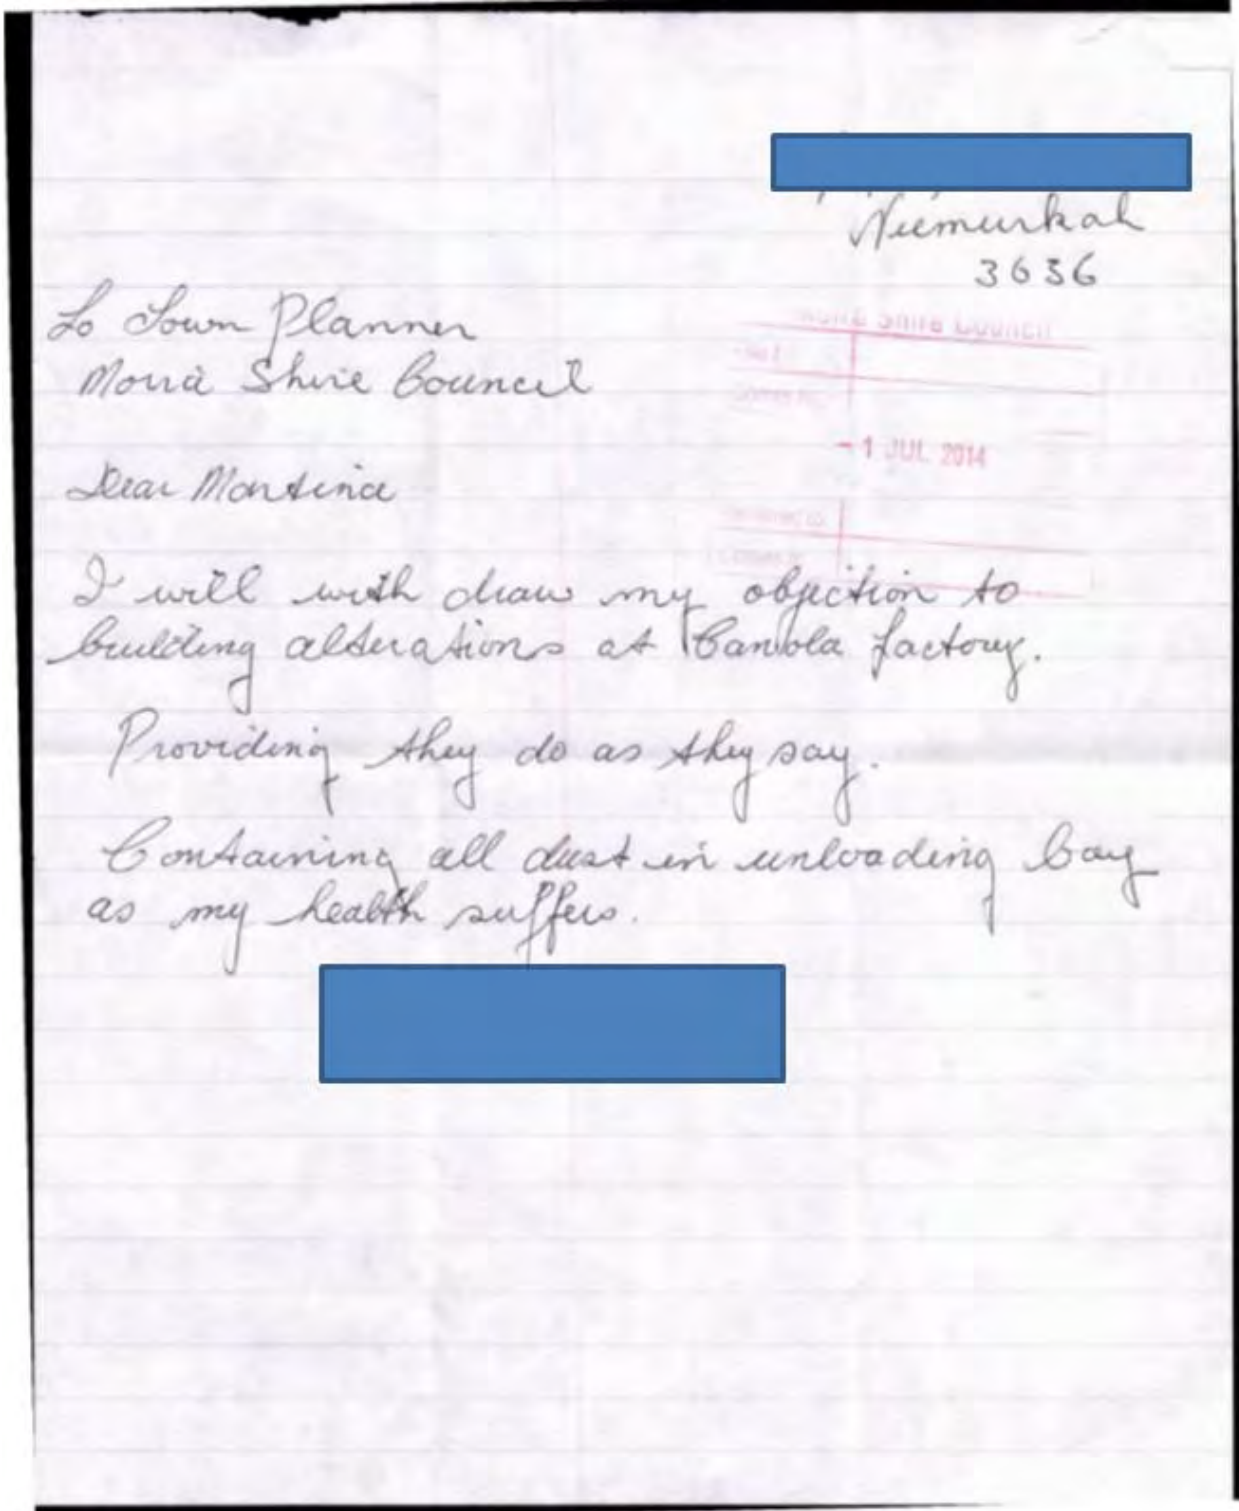 Numurkah
3636
To Town Planner
Moira Shire Council
Moira Shire Council
- 1 JUL 2014
Dear Martina
I will with draw my objection to
building alterations at Canola factory.
Providing they do as they say.
Containing all dust in unloading bay
as my health suffers.